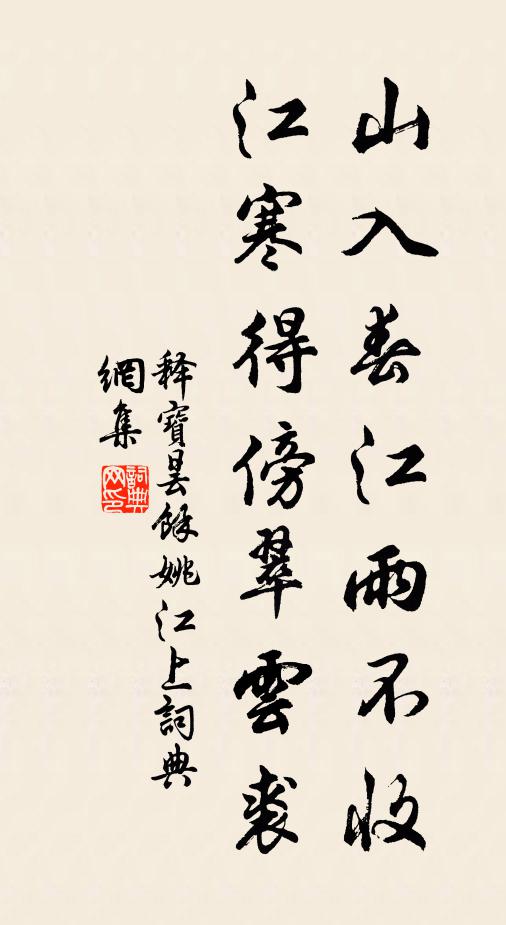 山入春江雨不收
江寒得傍翠雲裘
释寶曇餘姚江上詞典
網集
詞典网印